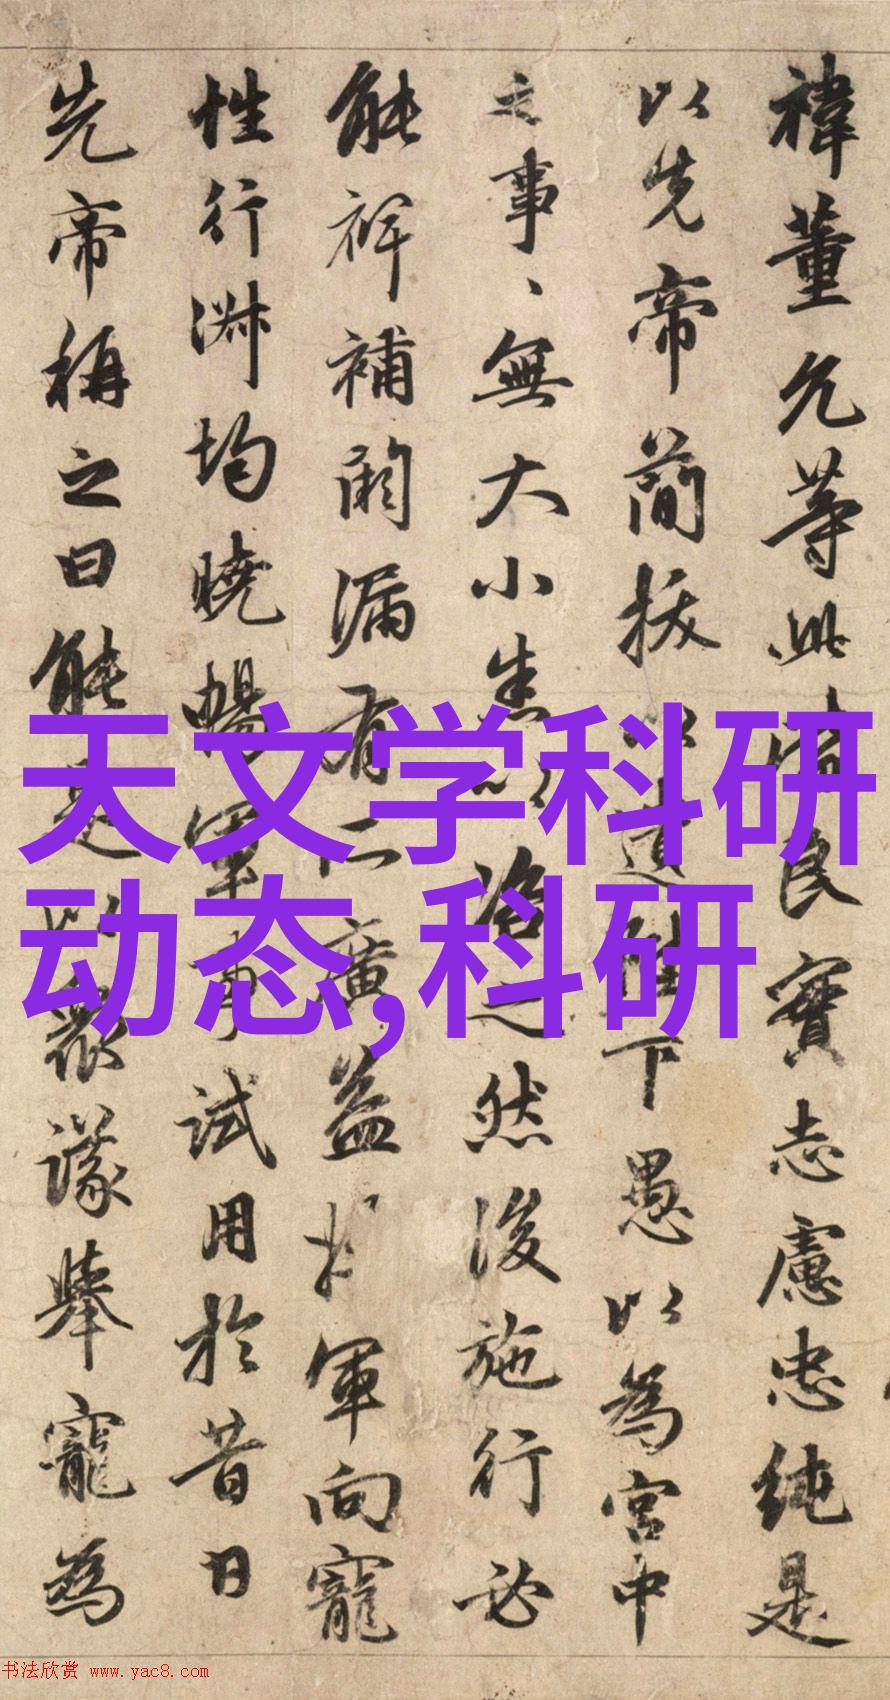 禕董允等此皆良實志慮忠純是
以先帝簡拔以遺陛下愚以為宮中
之事、無大小悉以咨之然後施行必
能裨補闕漏有所廣益将軍向寵
性行淑均曉暢軍事試用於昔日
先帝稱之曰能是以衆議舉寵為
天文学科研
动态,科研
书法欣赏 www.yac8.com